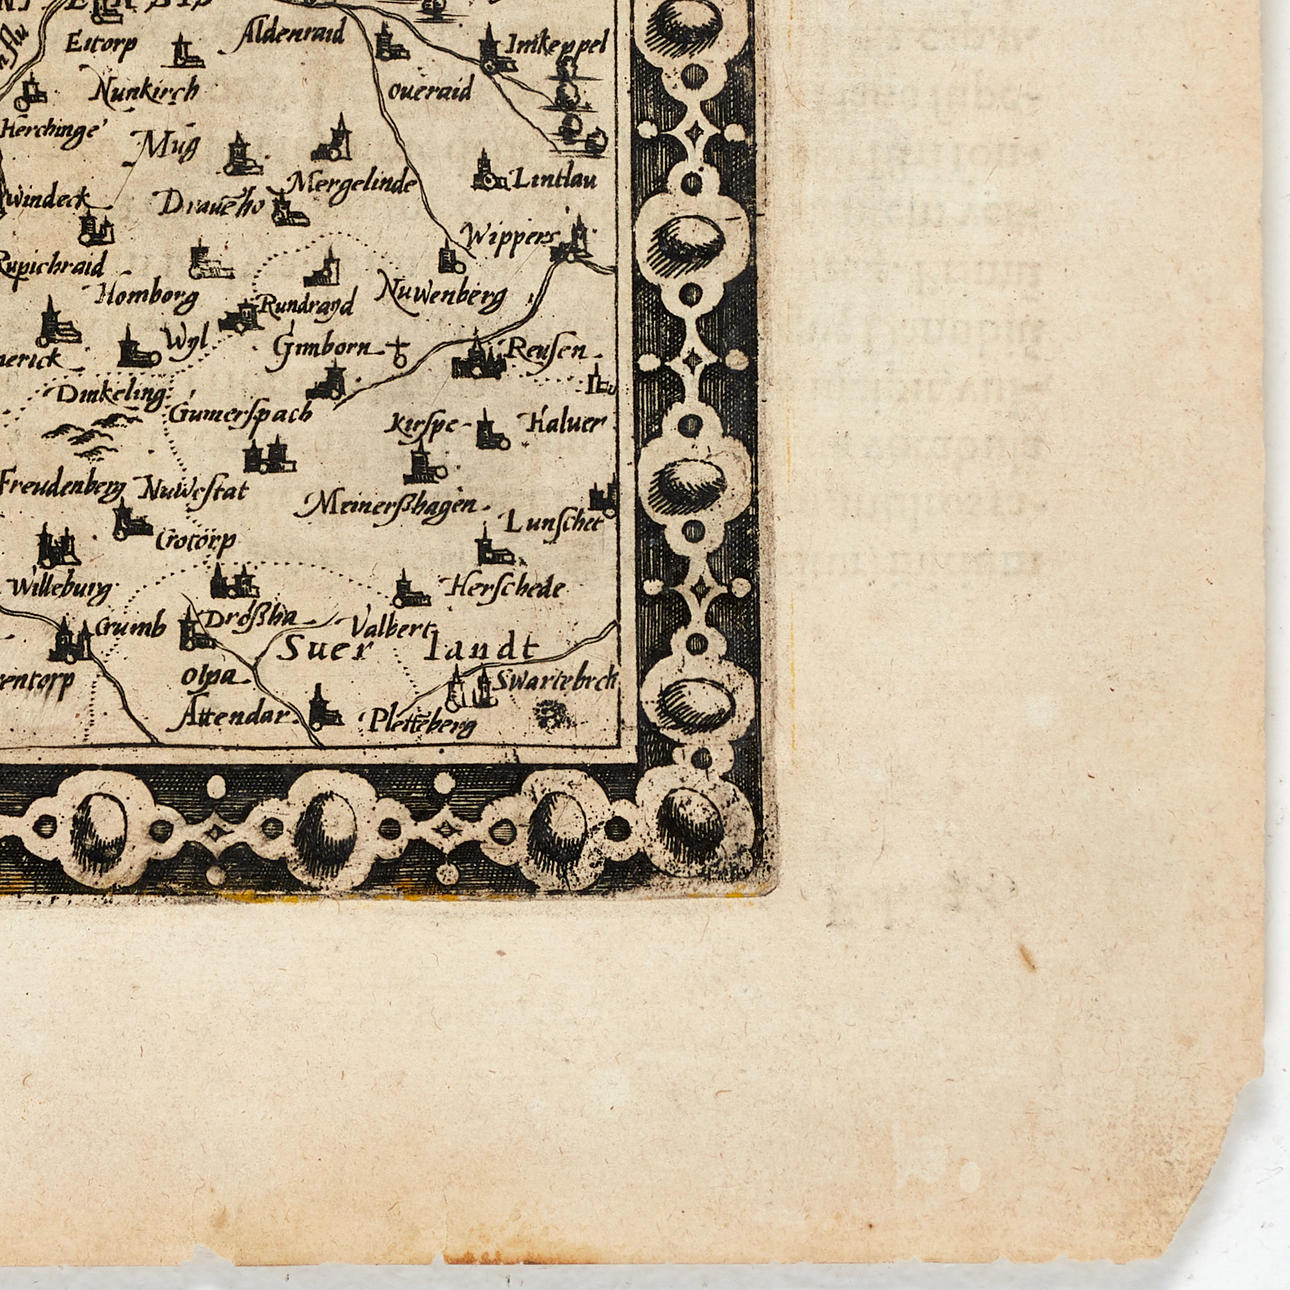 Eitorp
Aldenraid
Imkeppel
Nunkirch
oueraid
Herchinge'
Mug
Mergelinde
Lintlau
windeck
Drauēho
Wippers
Rupichraid
Homborg
Rundrayd
Nuwenberg
Wyl
Gimborn
Reusen
Dinkeling
Gumerſpach
Kirſpe
Haluer
Freudenberg
Nuweſtat
Meinerßhagen
Lunſchet
Crotorp
Willeburg
Herſchede
Crumb
Droßha
Valbert
Suer landt
olpa
Swartebrch
Attendar
Plettēberg